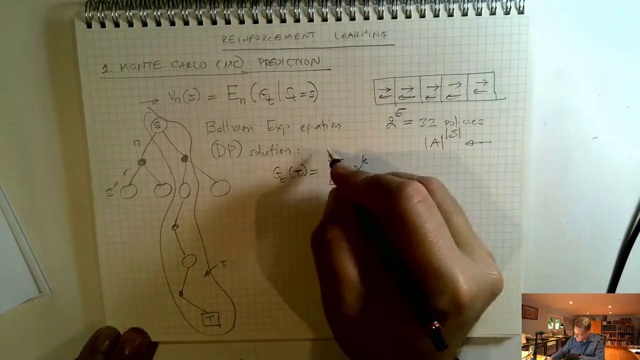 REINFORCEMENT LEARNING
1 MONTE-CARLO (MC) PREDICTION
→ Vπ(s) = Eπ(Gt | St = s)
Bellman Exp equation
(DP) solution:
Gt(τ) =
γ^k
2^5 = 32 policies
|A|^|S| ←
S
π
r
s'
τ
T